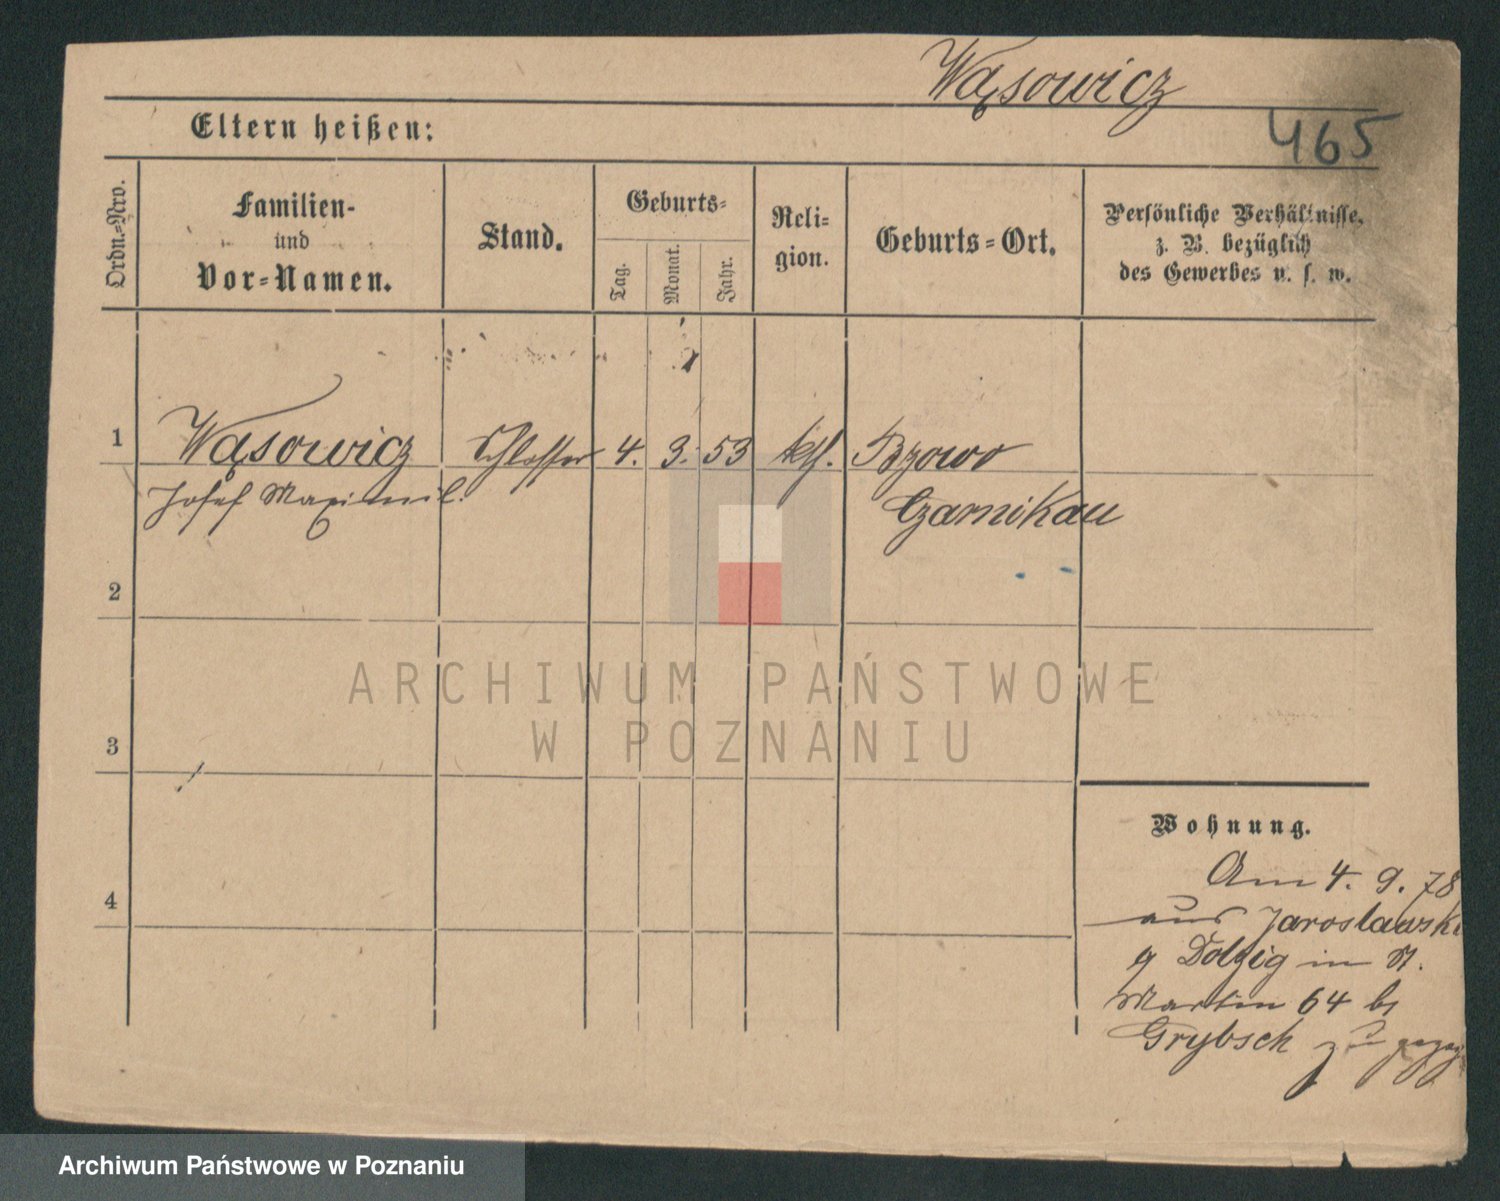 Wąsowicz
465
Eltern heißen:
Ordn.-Nro.
Familien-
und
Vor-Namen.
Stand.
Geburts-
Tag.
Monat.
Jahr.
Reli-
gion.
Geburts-Ort.
Persönliche Verhältnisse,
z. B. bezüglich
des Gewerbes u. s. w.
1
Wąsowicz Schlosser 4. 3. 53 kth. Bzowo
Josef Maximil. Czarnikau
2
3
4
Wohnung.
Am 4. 9. 78
aus Jaroslawski
Dolzig in St.
Martin 64 bei
Grybsch
ARCHIWUM PAŃSTWOWE
W POZNANIU
Archiwum Państwowe w Poznaniu